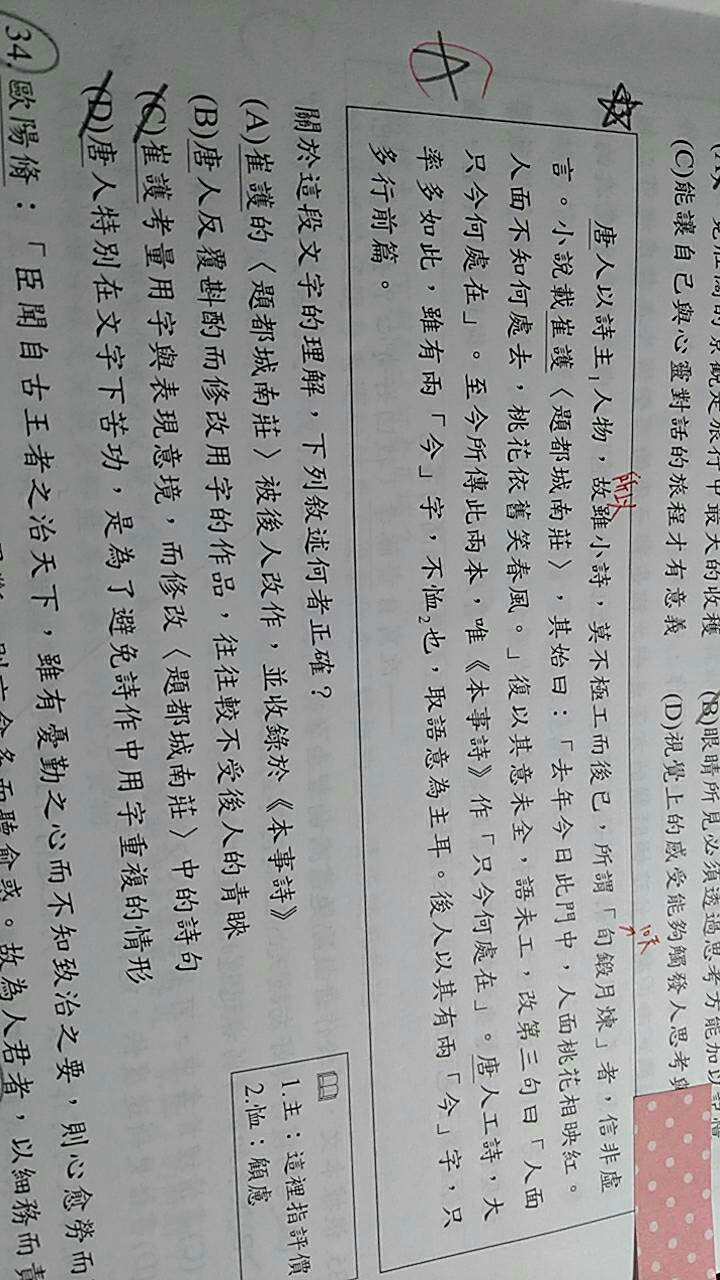 (C)能讓自己與心靈對話的旅程才有意義 (D)視覺上的感受能夠觸發人思考與
唐人以詩主1人物，故雖小詩，莫不極工而後已，所謂「旬鍛月煉」者，信非虛
言。小說載崔護〈題都城南莊〉，其始曰：「去年今日此門中，人面桃花相映紅。
人面不知何處去，桃花依舊笑春風。」復以其意未全，語未工，改第三句曰「人面
只今何處在」。至今所傳此兩本，唯《本事詩》作「只今何處在」。唐人工詩，大
率多如此，雖有兩「今」字，不恤2也，取語意為主耳。後人以其有兩「今」字，只
多行前篇。
所以
10天
A
1.主：這裡指評價
2.恤：顧慮
關於這段文字的理解，下列敘述何者正確？
(A)崔護的〈題都城南莊〉被後人改作，並收錄於《本事詩》
(B)唐人反覆斟酌而修改用字的作品，往往較不受後人的青睞
(C)崔護考量用字與表現意境，而修改〈題都城南莊〉中的詩句
(D)唐人特別在文字下苦功，是為了避免詩作中用字重複的情形
34.歐陽脩：「臣聞自古王者之治天下，雖有憂勤之心而不知致治之要，則心愈勞而
故為人君者，以細務而責